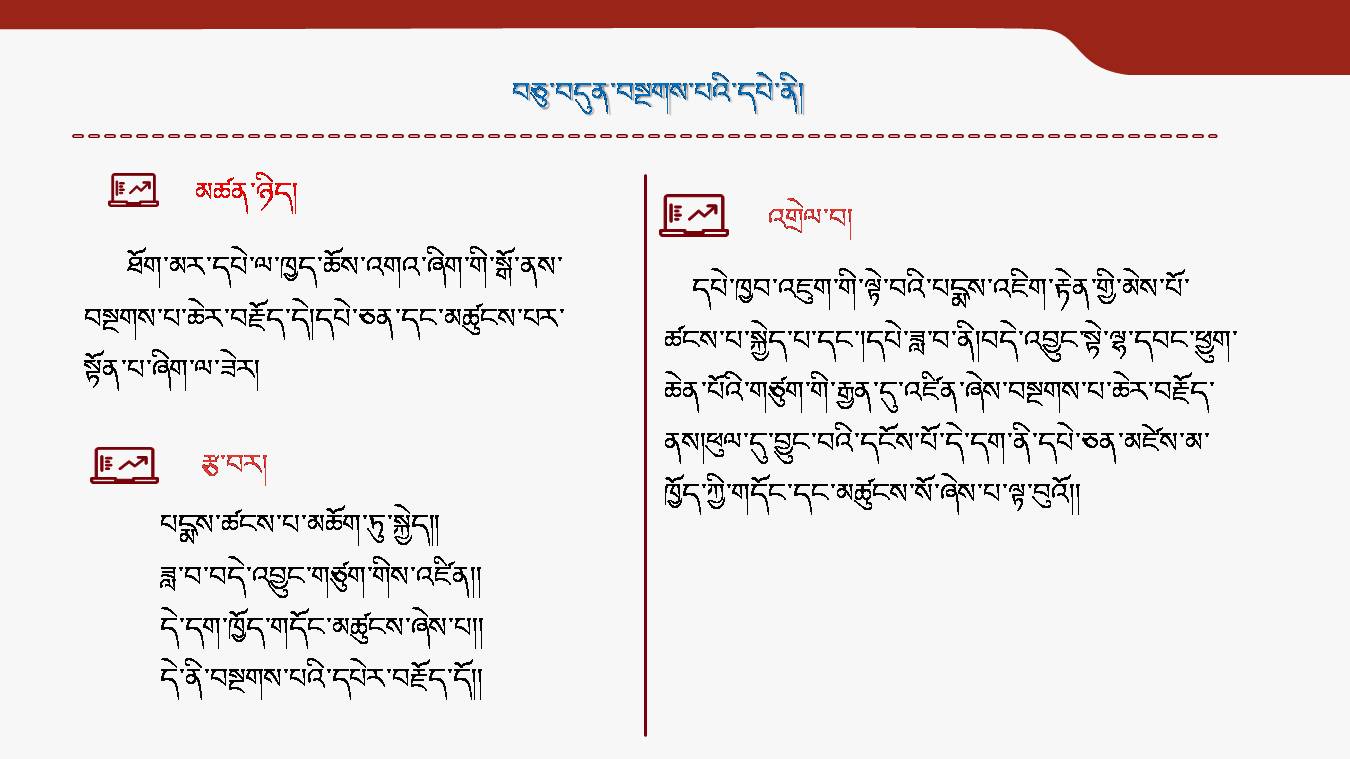 བཅུ་བདུན་བསྔགས་པའི་དཔེ་ནི།
མཚན་ཉིད།
ཐོག་མར་དཔེ་ལ་ཁྱད་ཆོས་འགའ་ཞིག་གི་སྒོ་ནས་
བསྔགས་པ་ཆེར་བརྗོད་དེ།དཔེ་ཅན་དང་མཚུངས་པར་
སྟོན་པ་ཞིག་ལ་ཟེར།
རྩ་བར།
པདྨས་ཚངས་པ་མཆོག་ཏུ་སྐྱེད།།
ཟླ་བ་བདེ་འབྱུང་གཙུག་གིས་འཛིན།།
དེ་དག་ཁྱོད་གདོང་མཚུངས་ཞེས་པ།།
དེ་ནི་བསྔགས་པའི་དཔེར་བརྗོད་དོ།།
འགྲེལ་བ།
དཔེ་ཁྱབ་འཇུག་གི་ལྟེ་བའི་པདྨས་འཇིག་རྟེན་གྱི་མེས་པོ་
ཚངས་པ་སྐྱེད་པ་དང་།དཔེ་ཟླ་བ་ནི།བདེ་འབྱུང་སྟེ་ལྷ་དབང་ཕྱུག་
ཆེན་པོའི་གཙུག་གི་རྒྱན་དུ་འཛིན་ཞེས་བསྔགས་པ་ཆེར་བརྗོད་
ནས།ཕུལ་དུ་བྱུང་བའི་དངོས་པོ་དེ་དག་ནི་དཔེ་ཅན་མཛེས་མ་
ཁྱོད་ཀྱི་གདོང་དང་མཚུངས་སོ་ཞེས་པ་ལྟ་བུའོ།།